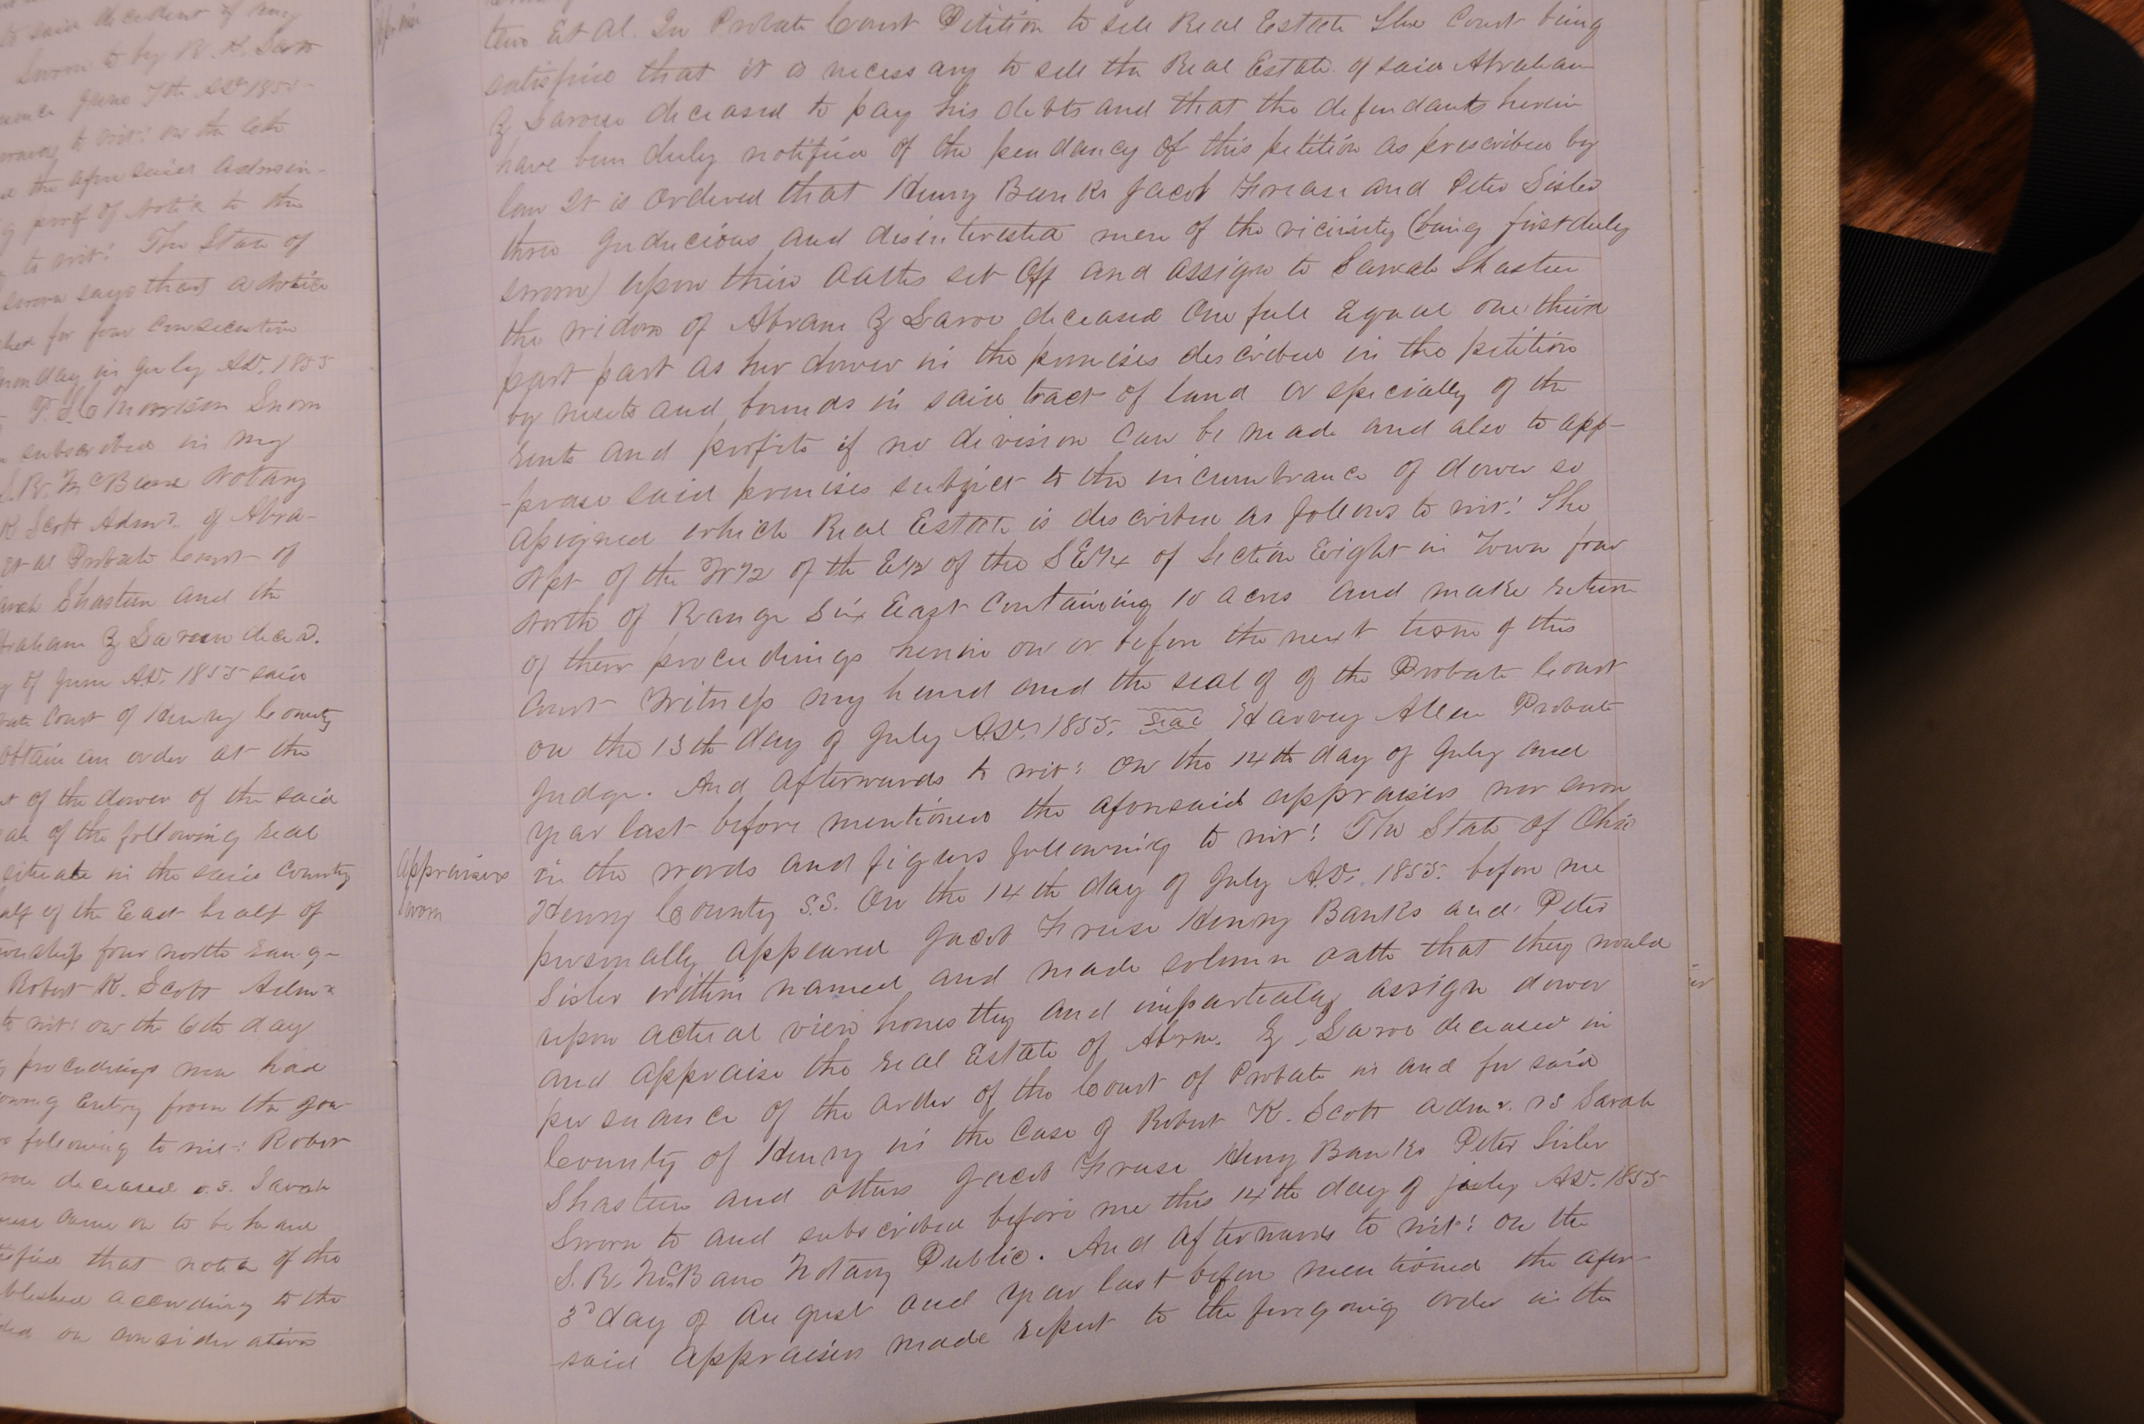 to said decedent of my
Sworn to by R. K. Scott
June 7th AD 1855
to wit: on the 6th
the afore said Admin-
proof of Notic to the
to wit: The State of
sworn says that a Notice
for four Consecutive
monday in July AD. 1855
Morrison Sworn
subscribed in my
S. R. McBane Notary
K Scott Admr. of Abra-
Et al Probate Court of
Sarah Shasteen and the
Abraham Z Laroue decd.
of June AD. 1855 said
Court of Henry County
obtain an order at the
of the dower of the said
of the following real
situate in the said County
half of the East half of
four north rang-
Robert K. Scott Admr
to wit: on the 6th day
proceedings was had
Entry from the Jour
following to wit: Robert
deceased v.s. Sarah
came on to be heard
that notice of the
according to the
on consideration
teen Et Al. In Probate Court Petition to sell Real Estate The Court being
satisfied that it is necessary to sell the Real Estate of said Abraham
Z Laroue deceased to pay his debts and that the defendants herein
have been duly notified of the pendancy of this petition as prescribed by
law It is Ordered that Henry Banks Jacob Frease and Peter Sisler
three Juducious and disinterested men of the vicinity (being first duly
sworn) upon their oaths set Off and assign to Sarah Shasteen
the widow of Abram Z Laroe deceased One full Equal one third
part part as her dower in the premises described in the petition
by meets and bounds in said tract of land or specially of the
rents and profits if no division Can be made and also to app-
-prase said premises subject to the incumbrance of dower so
assigned which Real Estate is described as follows to wit: The
Npt of the W1/2 of the E1/2 of the S E1/4 of Section Eight in Town four
North of Range Six East Containing 10 acres and make return
of their proceedings herein on or before the next term of this
Court Witness my hand and the seal of of the Probate Court
on the 13th day of July AD. 1855. Seal Harvey Allen Probate
Judge. And afterwards to wit: On the 14th day of July and
year last before mentioned the aforesaid appraisers was sworn
Appraisers
Sworn
in the words and figures following to wit: The State of Ohio
Henry County S.S. On the 14th day of July AD. 1855. before me
personally appeared Jacob Frease Henry Banks and Peter
Sisler within named and made solemn oath that they would
upon actual view honestly and impartially assign dower
and appraise the real Estate of Abrm. Z. Laroe deceased in
persuance of the order of the Court of Probate in and for said
County of Henry in the Case of Robert K. Scott admr. vs Sarah
Shasteen and others Jacob Frease Henry Banks Peter Sisler
Sworn to and subscribed before me this 14th day of july AD. 1855
S. R. McBane Notary Public. And afterwards to wit: On the
3d day of August and year last before mentioned the afor
-said appraisers made report to the foregoing order in the